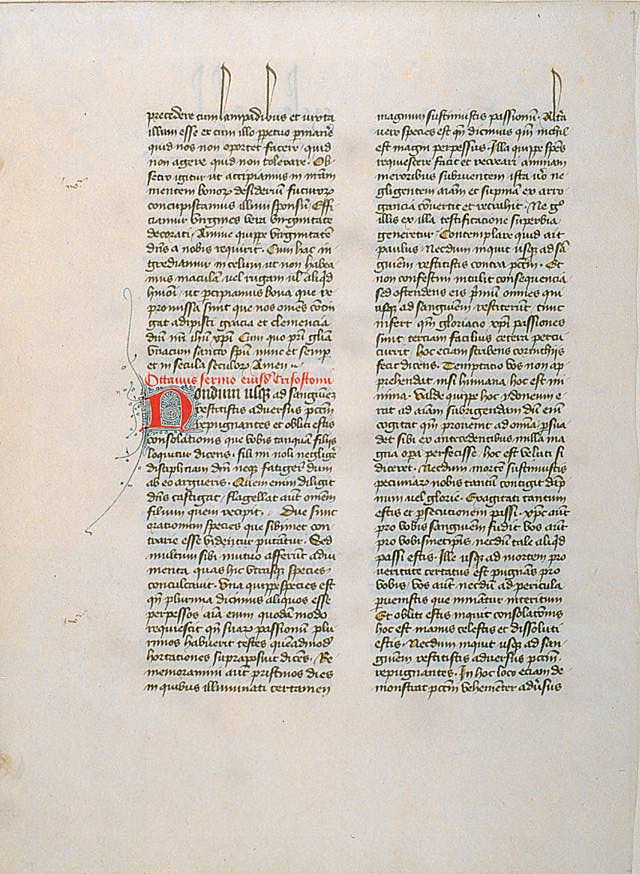 precedere cum lampadibus et iuncta
illum esse et cum illo ppetuo pmane
quid nos non oportet facere quid
non agere quid non tolerare. Ob
secro igitur ut accipiamus in mam
mentem bonor desideriu futuror
concupiscamus illum sponsu Effi
ciamur virgines vera virginitate
decorati. Anime quippe virginitate
dns a nobis requirit. Cum hac in
grediamur in celum ut non habea
mus macula vel rugam ul aliqd
hmoi. ut pcipiamus bona que re
promissa sunt que nos omes contin
gat adipisci gracia et clemencia
dni nri ihu xpi Cum quo pri glia
una cum sancto spu nunc et semp
et in secula seculor Amen
Ottavus sermo eiusd Crisostomi
Nondum usq ad sanguine
restitistis adversus pccm
repugnantes et obliti estis
consolationis que vobis tanqua filiis
loquitur dicens. fili mi noli neglige
disciplinam dni neq fatigeris dum
ab eo argueris. Quem enim diligit
dns castigat. flagellat aut omem
filium quem recipit. Due sunt
orationum species que sibimet con
trarie esse videntur putatur. Sed
multum sibi mutuo afferut adiu
menta quas hic utrasq species
conculcavit. Una quippe species est
qn plurima dicimus aliquos esse
perpessos aia enim quodam modo
requiescit qn suar passionum plu
rimos habuerit testes quemadmod
hortationes supraposuit dices. Re
memoramini aut pristinos dies
in quibus illuminati certamen
magnum sustinuistis passionu. Altera
vero species est qn dicimus qm nichil
est magni perpessus. Illa quippe spes
requiescere facit et recreari animam
meroribus subiuventem ista vero ne
gligentem aiam et supina ex arro
gancia convertit et retrahit. Ne go
illis ex illa testificatione superbia
generetur. Contemplare quid ait
paulus. Necdum inquit usq ad sa
guinem restitistis contra pccm. Et
non confestim intulit consequencia
sed ostendens eis primu omnes qui
usq ad sanguinem restiterut tunc
infert qm gloriacio xpi passiones
sunt tertiam facilius cetera percu
currit hoc etiam scribens corinthiis
fecit dicens. Temptatio vos non ap
prehendat nisi humana hoc est mi
nima. Valde quippe hoc ydoneum e
rat ad aiam subrigendam dum eni
cogitat qm provenit ad omia psua
det sibi ex antecedentibus nulla ma
gna opa perfecisse. hoc est velut si
diceret. Necdum morte sustinuistis
pecuniar nobis tantu contigit dap
num vel glorie. Exagitati tantum
estis et psecutionem passi. xpc aut
pro vobis sanguinem fudit vos aut
pro vobismetipis necdu tale aliqd
passi estis. Ille usq ad mortem pro
veritate certatus est pugnas pro
vobis. vos aut necdu ad pericula
puenistis que minatur interitum
Et obliti estis inquit consolationis
hoc est manus celestis et dissoluti
estis. Necdum inquit usq ad san
guinem restitistis adversus pccm
repugnantes. In hoc loco eciam de
monstrat pccm vehementer adusus